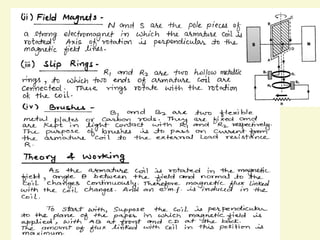 (ii) Field Magnets -
N and S are the pole pieces of
a strong electromagnet in which the armature coil is
rotated. Axis of rotation is perpendicular to the
magnetic field lines.
(iii) Slip Rings -
R₁ and R₂ are two hollow metallic
rings, to which two ends of armature coil are
Connected. These rings rotate with the rotation
of the coil.
(iv) Brushes -
B₁ and B₂ are two flexible
metal plates or Carbon rods. They are fixed and
are kept in light contact with R₁ and R₂ respectively.
The purpose of brushes is to pass on Current from
the armature Coil to the external Load resistance
R.
Theory & Working
As the armature Coil is rotated in the magnetic
field, angle θ between the field and normal to the
Coil changes Continuously. Therefore magnetic flux linked
with the Coil changes. And an e.m.f is induced in the
Coil.
To start with, Suppose the Coil is perpendicular
to the plane of the paper in which magnetic field is
applied, with AB at front and CD at the back.
The amount of flux linked with Coil in this position is
maximum.